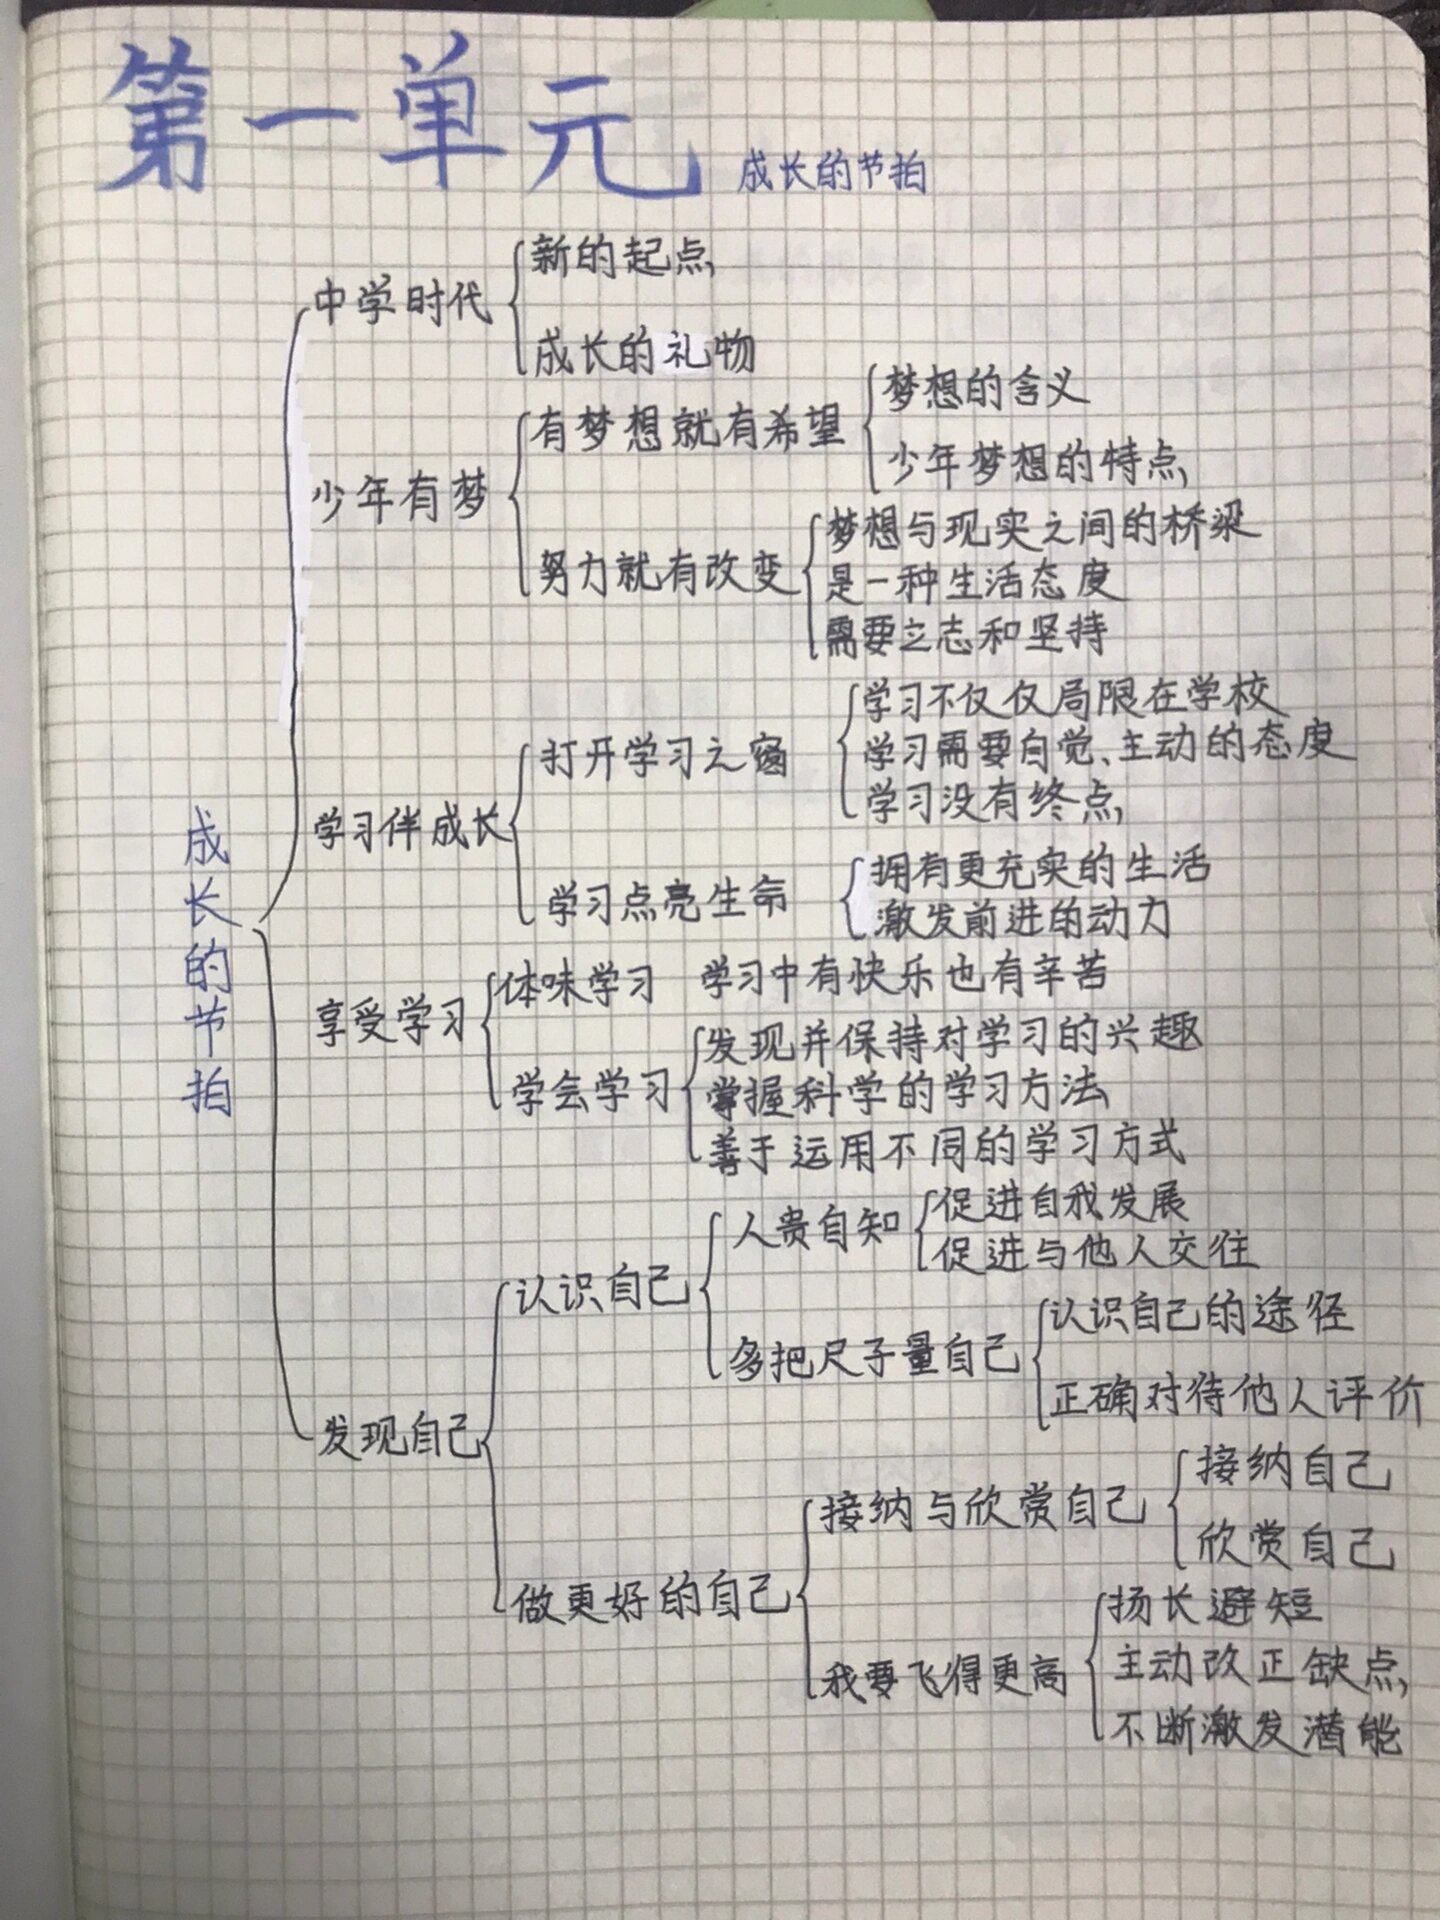 第一单元 成长的节拍
成长的节拍
中学时代
新的起点
成长的礼物
少年有梦
有梦想就有希望
梦想的含义
少年梦想的特点
努力就有改变
梦想与现实之间的桥梁
是一种生活态度
需要立志和坚持
学习伴成长
打开学习之窗
学习不仅仅局限在学校
学习需要自觉、主动的态度
学习没有终点
学习点亮生命
拥有更充实的生活
激发前进的动力
享受学习
体味学习 学习中有快乐也有辛苦
学会学习
发现并保持对学习的兴趣
掌握科学的学习方法
善于运用不同的学习方式
发现自己
认识自己
人贵自知
促进自我发展
促进与他人交往
多把尺子量自己
认识自己的途径
正确对待他人评价
做更好的自己
接纳与欣赏自己
接纳自己
欣赏自己
我要飞得更高
扬长避短
主动改正缺点
不断激发潜能